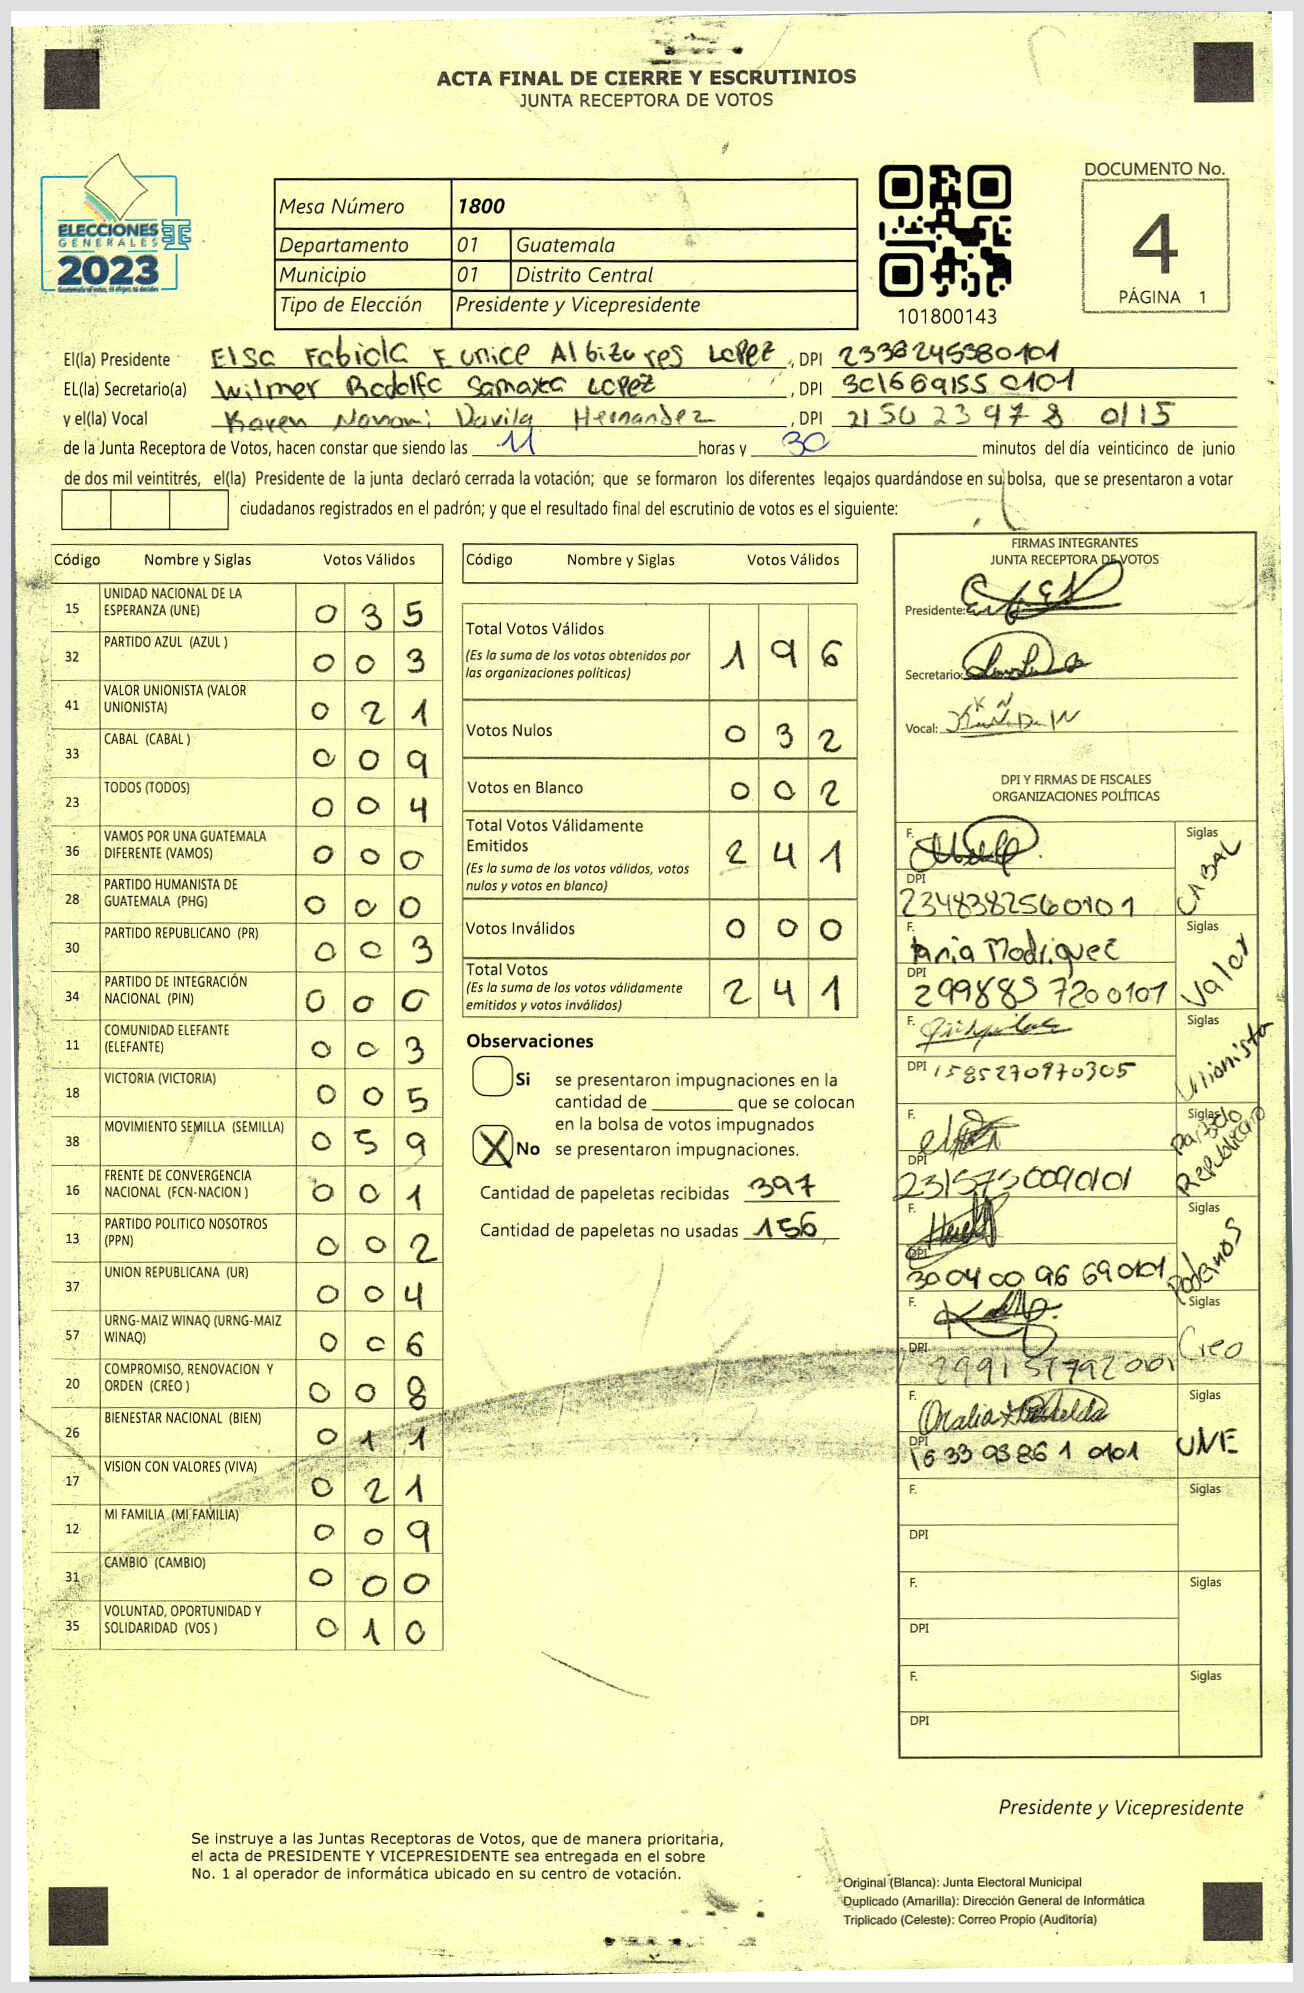 ACTA FINAL DE CIERRE Y ESCRUTINIOS
JUNTA RECEPTORA DE VOTOS
ELECCIONES
GENERALES
2023
Mesa Número 1800
Departamento 01 Guatemala
Municipio 01 Distrito Central
Tipo de Elección Presidente y Vicepresidente
101800143
DOCUMENTO No.
4
PÁGINA 1
El(la) Presidente Elsa Fabiola Eunice Albizures Lopez, DPI 2338245980101
EL(la) Secretario(a) Wilmer Rodolfo Samaxa Lopez, DPI 3016691550101
y el(la) Vocal Karen Davila Hernandez, DPI 2150 23978 0115
de la Junta Receptora de Votos, hacen constar que siendo las 11 horas y 30 minutos del día veinticinco de junio
de dos mil veintitrés, el(la) Presidente de la junta declaró cerrada la votación; que se formaron los diferentes legajos quardándose en su bolsa, que se presentaron a votar
ciudadanos registrados en el padrón; y que el resultado final del escrutinio de votos es el siguiente:
Código Nombre y Siglas Votos Válidos
15 UNIDAD NACIONAL DE LA ESPERANZA (UNE) 0 3 5
32 PARTIDO AZUL (AZUL ) 0 0 3
41 VALOR UNIONISTA (VALOR UNIONISTA) 0 2 1
33 CABAL (CABAL ) 0 0 9
23 TODOS (TODOS) 0 0 4
36 VAMOS POR UNA GUATEMALA DIFERENTE (VAMOS) 0 0 0
28 PARTIDO HUMANISTA DE GUATEMALA (PHG) 0 0 0
30 PARTIDO REPUBLICANO (PR) 0 0 3
34 PARTIDO DE INTEGRACIÓN NACIONAL (PIN) 0 0 0
11 COMUNIDAD ELEFANTE (ELEFANTE) 0 0 3
18 VICTORIA (VICTORIA) 0 0 5
38 MOVIMIENTO SEMILLA (SEMILLA) 0 5 9
16 FRENTE DE CONVERGENCIA NACIONAL (FCN-NACION ) 0 0 1
13 PARTIDO POLITICO NOSOTROS (PPN) 0 0 2
37 UNION REPUBLICANA (UR) 0 0 4
57 URNG-MAIZ WINAQ (URNG-MAIZ WINAQ) 0 0 6
20 COMPROMISO, RENOVACION Y ORDEN (CREO ) 0 0 8
26 BIENESTAR NACIONAL (BIEN) 0 1 1
17 VISION CON VALORES (VIVA) 0 2 1
12 MI FAMILIA (MI FAMILIA) 0 0 9
31 CAMBIO (CAMBIO) 0 0 0
35 VOLUNTAD, OPORTUNIDAD Y SOLIDARIDAD (VOS ) 0 1 0
Código Nombre y Siglas Votos Válidos
Total Votos Válidos 1 9 6
(Es la suma de los votos obtenidos por
las organizaciones políticas)
Votos Nulos 0 3 2
Votos en Blanco 0 0 2
Total Votos Válidamente
Emitidos 2 4 1
(Es la suma de los votos válidos, votos
nulos y votos en blanco)
Votos Inválidos 0 0 0
Total Votos 2 4 1
(Es la suma de los votos válidamente
emitidos y votos inválidos)
Observaciones
Si se presentaron impugnaciones en la
cantidad de ________ que se colocan
en la bolsa de votos impugnados
X No se presentaron impugnaciones.
Cantidad de papeletas recibidas 397
Cantidad de papeletas no usadas 156
FIRMAS INTEGRANTES
JUNTA RECEPTORA DE VOTOS
Presidente:
Secretario:
Vocal:
DPI Y FIRMAS DE FISCALES
ORGANIZACIONES POLÍTICAS
F. Siglas CABAL
DPI 2348382560101
F. Tania Rodriguez Siglas Valor
DPI 299885 7200101
F. Siglas Unionista
DPI 1585270970305
F. Siglas Partido Republicano
DPI 2315750090101
F. Siglas Podemos
DPI 300400 96 69 0101
F. Siglas Creo
DPI
F. Siglas UNE
DPI 1633 93861 0101
F. Siglas
DPI
F. Siglas
DPI
F. Siglas
DPI
Presidente y Vicepresidente
Se instruye a las Juntas Receptoras de Votos, que de manera prioritaria,
el acta de PRESIDENTE Y VICEPRESIDENTE sea entregada en el sobre
No. 1 al operador de informática ubicado en su centro de votación.
Original (Blanca): Junta Electoral Municipal
Duplicado (Amarilla): Dirección General de Informática
Triplicado (Celeste): Correo Propio (Auditoría)